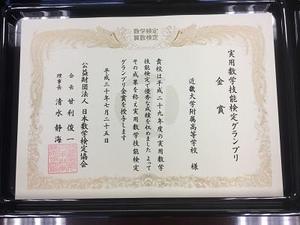 数学検定
算数検定
実用数学技能検定グランプリ
金賞
近畿大学附属高等学校 様
貴校は平成二十九年度の実用数学
技能検定で優秀な成績を収めました よって
その成果を称え実用数学技能検定
グランプリ金賞を授与します
平成三十年七月二十五日
公益財団法人 日本数学検定協会
会長 甘利俊一
理事長 清水静海